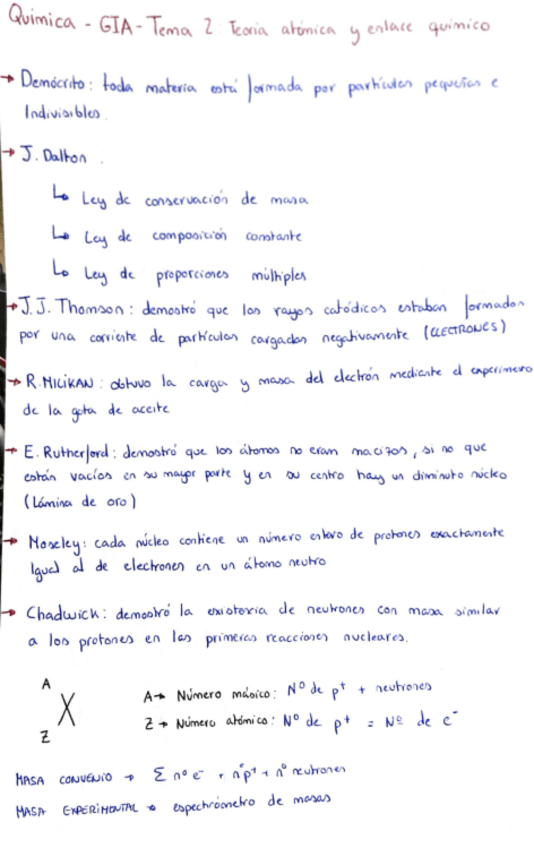 Química - GIA - Tema 2: Teoría atómica y enlace químico
→ Demócrito: toda materia está formada por partículas pequeñas e
Indivisibles.
→ J. Dalton.
↳ Ley de conservación de masa
↳ Ley de composición constante
↳ Ley de proporciones múltiples
→ J.J. Thomson: demostró que los rayos catódicos estaban formados
por una corriente de partículas cargadas negativamente (ELECTRONES)
→ R. MILIKAN: obtuvo la carga y masa del electrón mediante el experimento
de la gota de aceite
→ E. Rutherford: demostró que los átomos no eran macizos, si no que
están vacíos en su mayor parte y en su centro hay un diminuto núcleo
(Lámina de oro)
→ Moseley: cada núcleo contiene un número entero de protones exactamente
Igual al de electrones en un átomo neutro
→ Chadwick: demostró la existencia de neutrones con masa similar
a los protones en las primeras reacciones nucleares.
A
X
Z
A → Número másico: Nº de p⁺ + neutrones
Z → Número atómico: Nº de p⁺ = Nº de e⁻
MASA CONVENIO → Σ nº e⁻ + nºp⁺ + nº neutrones
MASA EXPERIMENTAL → espectrómetro de masas